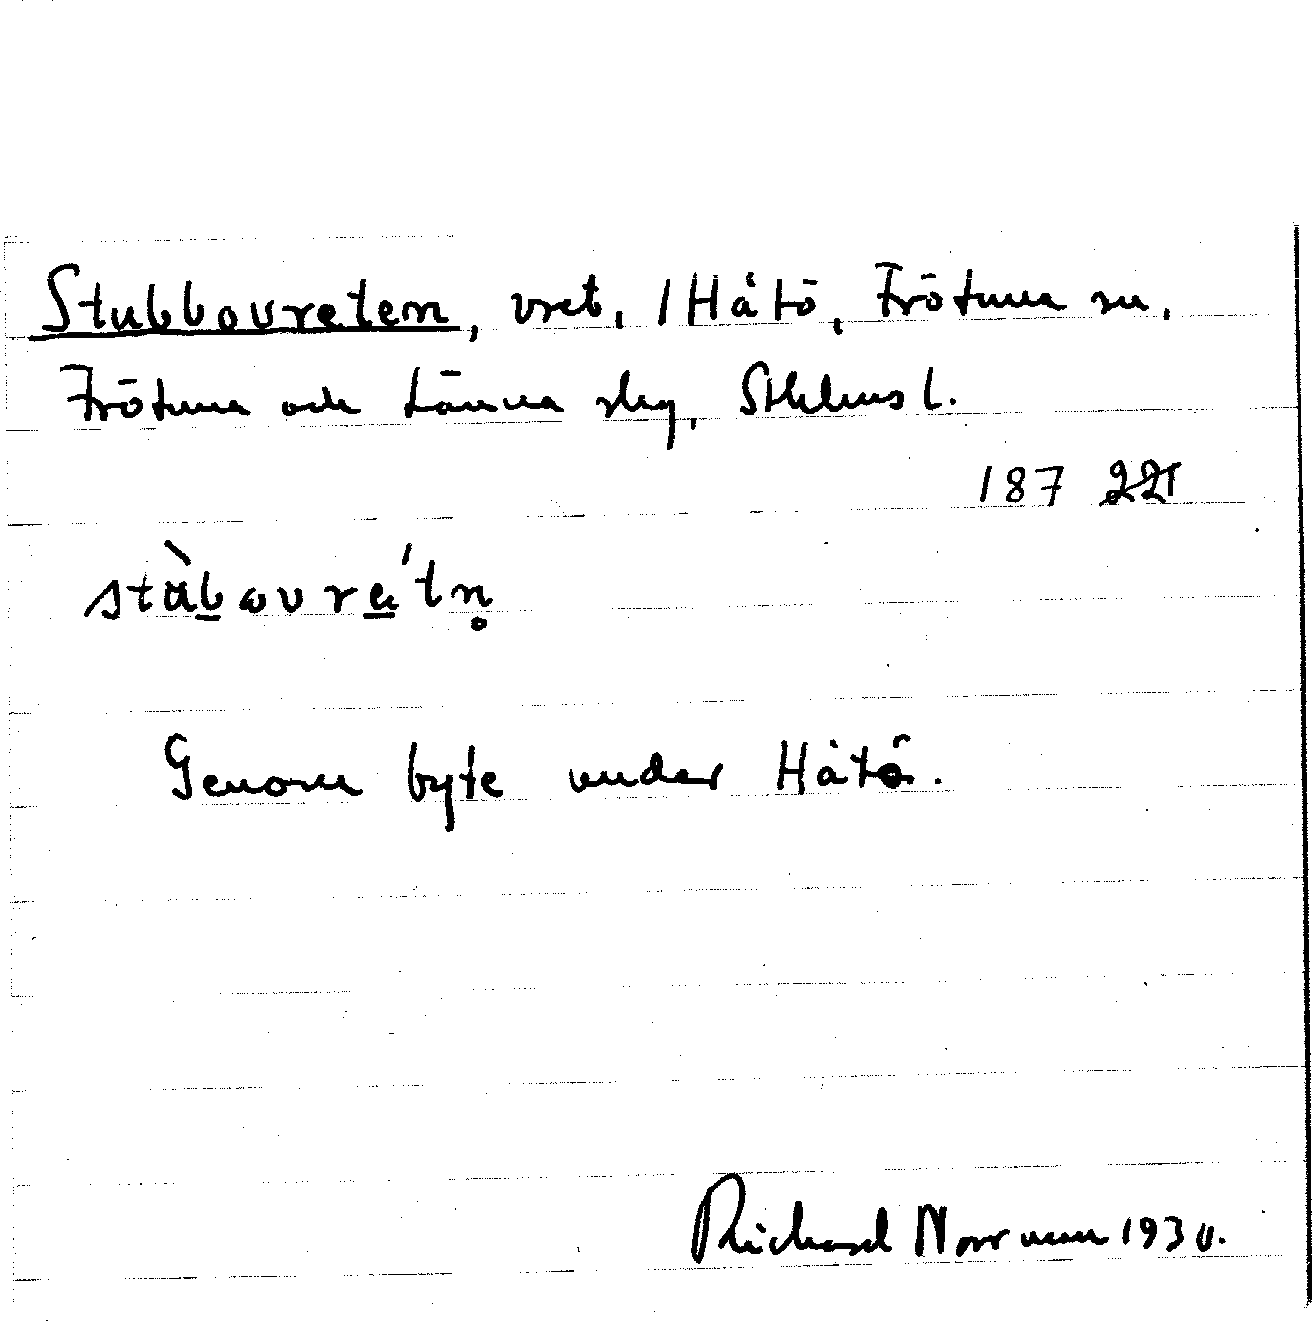 Stubbovreten, vret, 1 Håtö, Frötuna sn,
Frötuna och Länna slg, Sthlms l.
187 221
stùbovre´tn̥
Genom byte under Håtö.
Richard Norrman 1930.